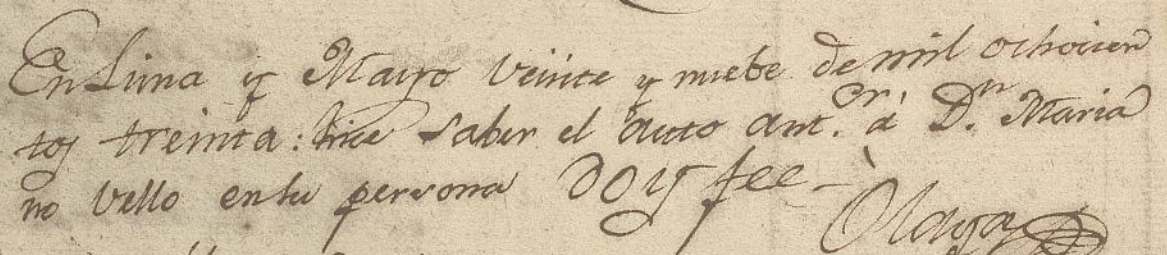 En Lima y Mayo veinte y nuebe de mil ochocien
tos treinta: hice saber el auto ant.or à D.n Maria
no Vello en su persona doy fee—
Olaya